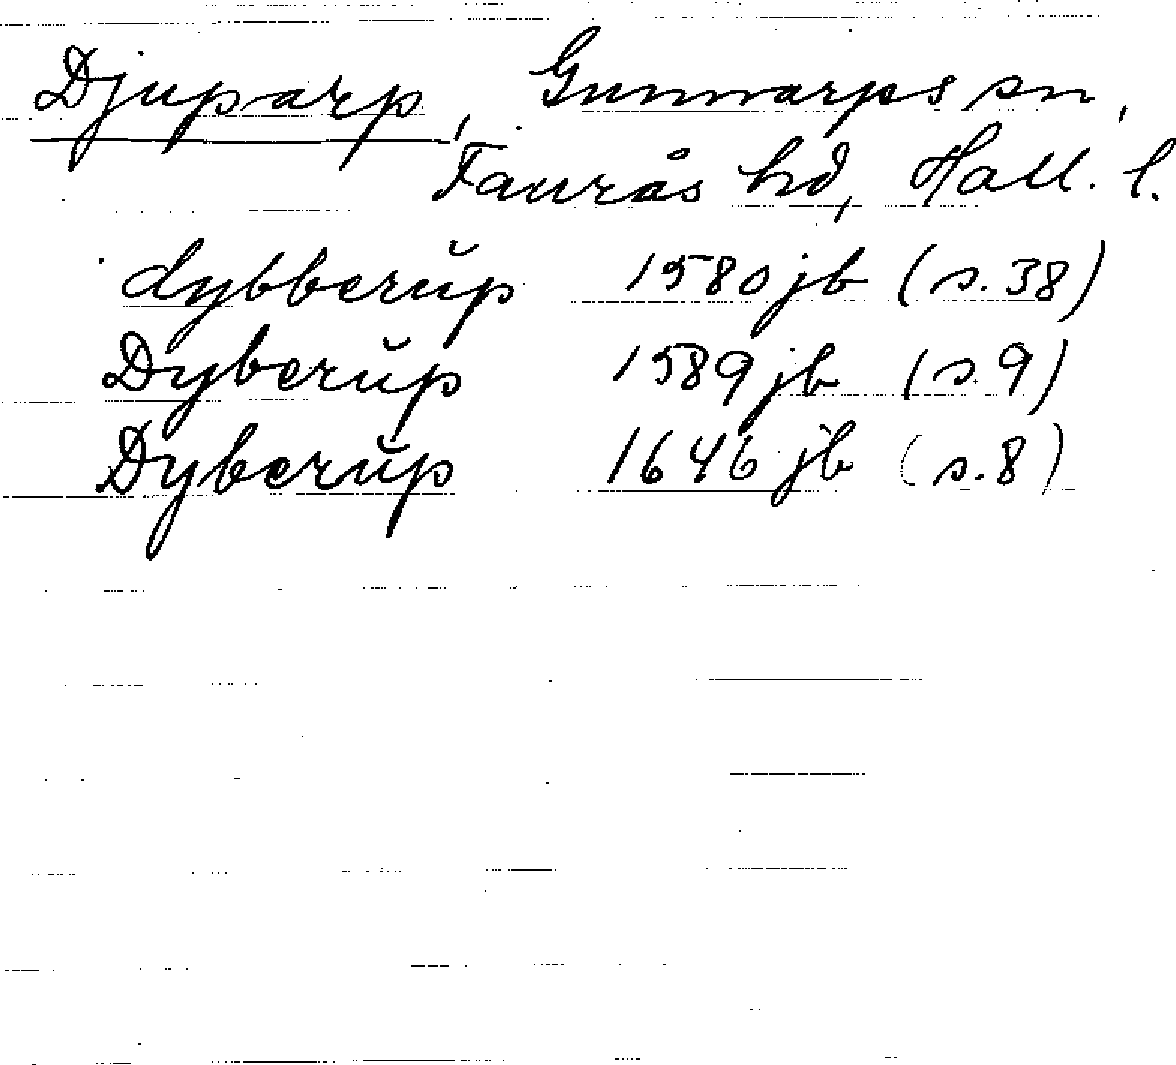 Djuparp, Gunnarps sn,
Faurås hd, Hall. l.
dybberŭp 1580 jb (s. 38)
Dyberŭp 1589 jb (s. 9)
Dyberŭp 1646 jb (s. 8)